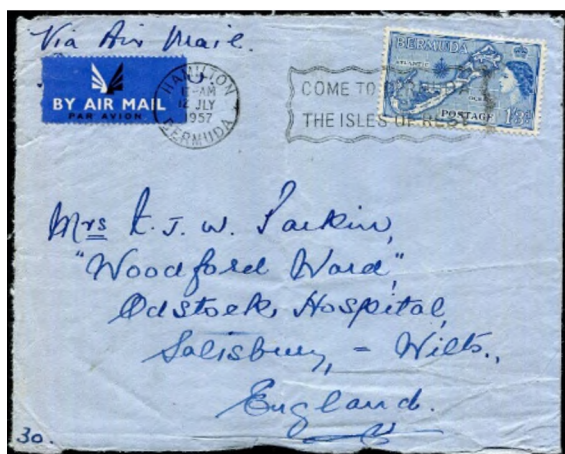 Via Air Mail.
BY AIR MAIL
PAR AVION
HAMILTON
AM
12 JLY
1957
BERMUDA
COME TO BERMUDA
THE ISLES OF REST
BERMUDA
POSTAGE 1/3d
Mrs J. W. Parkin,
"Woodford Ward",
Odstock Hospital,
Salisbury, - Wilts.,
England.
30.